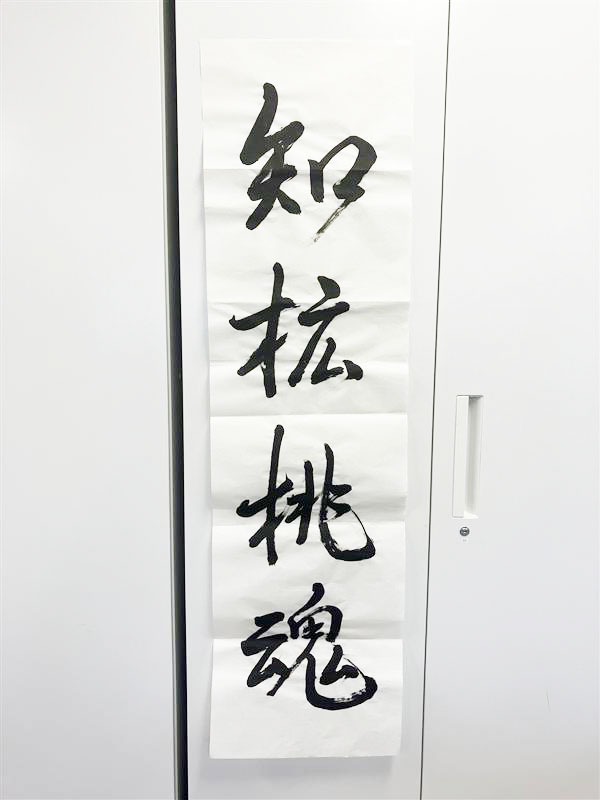 知拡挑魂